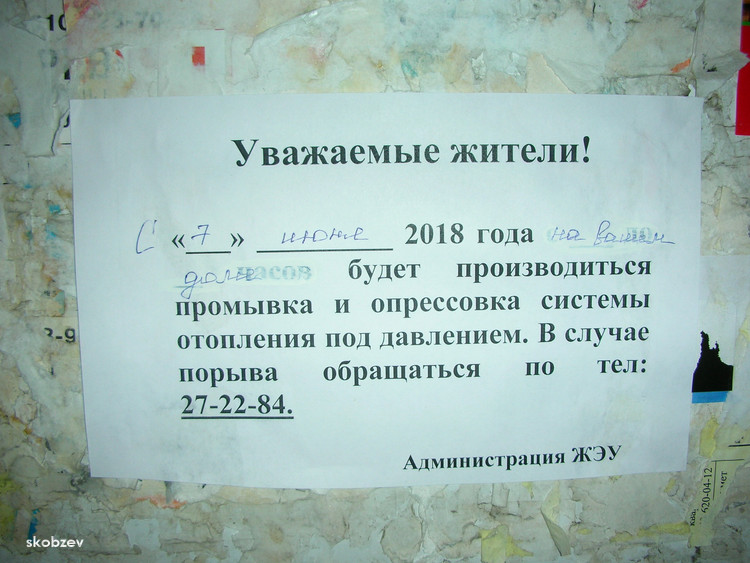 Уважаемые жители!
С «7» июня 2018 года на вашем
доме часов будет производиться
промывка и опрессовка системы
отопления под давлением. В случае
порыва обращаться по тел:
27-22-84.
Администрация ЖЭУ
620-04-12
skobzev